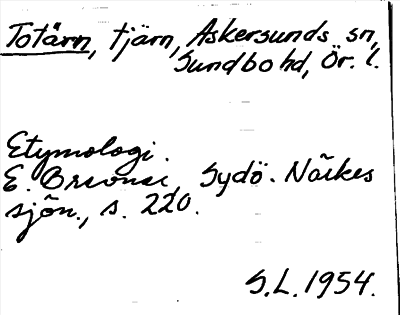 Totärn, tjärn, Askersunds sn,
Sundbo hd, Ör. l.
Etymologi.
E. Brevner, Sydö. Närkes
sjön., s. 220.
S.L. 1954.